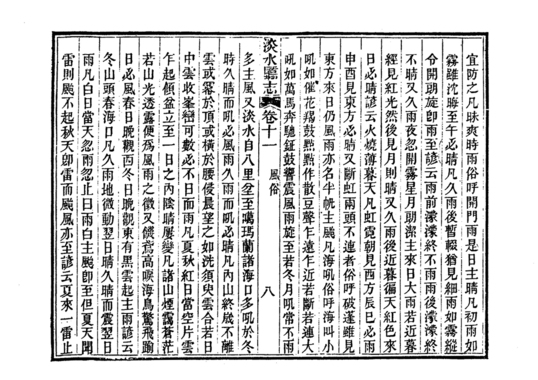 宜防之凡昧爽時雨俗呼開門雨是日主晴凡初雨如
霧雖沈晦至午必晴凡久雨後暫輟猶見細雨如霧縱
令開朗旋卽雨至諺云雨前濛濛終不雨雨後濛濛終
不晴又久雨夜忽開霽星月朗潔主來日大雨若近暮
經見紅光然後見月則晴又久雨後近暮徧天紅色來
日必晴諺云火燒薄暮天凡虹霓朝見西方辰巳必雨
申酉見東方必晴又斷虹兩頭不連者俗呼破蓬雖見
東方來日仍風雨亦名牛主颶凡海吼俗呼海叫小
吼如催花羯鼓點點作散豆聲乍遠乍近若斷若連大
吼如萬馬奔馳鉦鼓響震風雨旋至若冬月吼常不雨
淡水廳志 卷十一 風俗 八
多主風又淡水自八里坌至噶瑪蘭諸海口多吼於冬
時久晴而吼必風雨久雨而吼必晴凡內山終歲不離
雲或冪於頂或橫於腰侵晨望之如洗須臾雲合若日
中雲收巒可數必不日而雨凡夏秋紅日當空片雲
乍起傾盆立至一日之內陰晴屢變凡諸山煙靄蒼茫
若山光透露便爲風雨之徵又饑鳶高唳海鳥驚飛踰
日必風春日晚觀西冬日晚觀東有黑雲起主雨諺云
冬山頭春海口凡久雨地微動翌日晴久晴而震翌日
雨凡白日當天忽雨忽止曰雨白主颶卽至但夏天聞
雷則颶不起秋天卽雷而颶風亦至諺云夏來一雷止